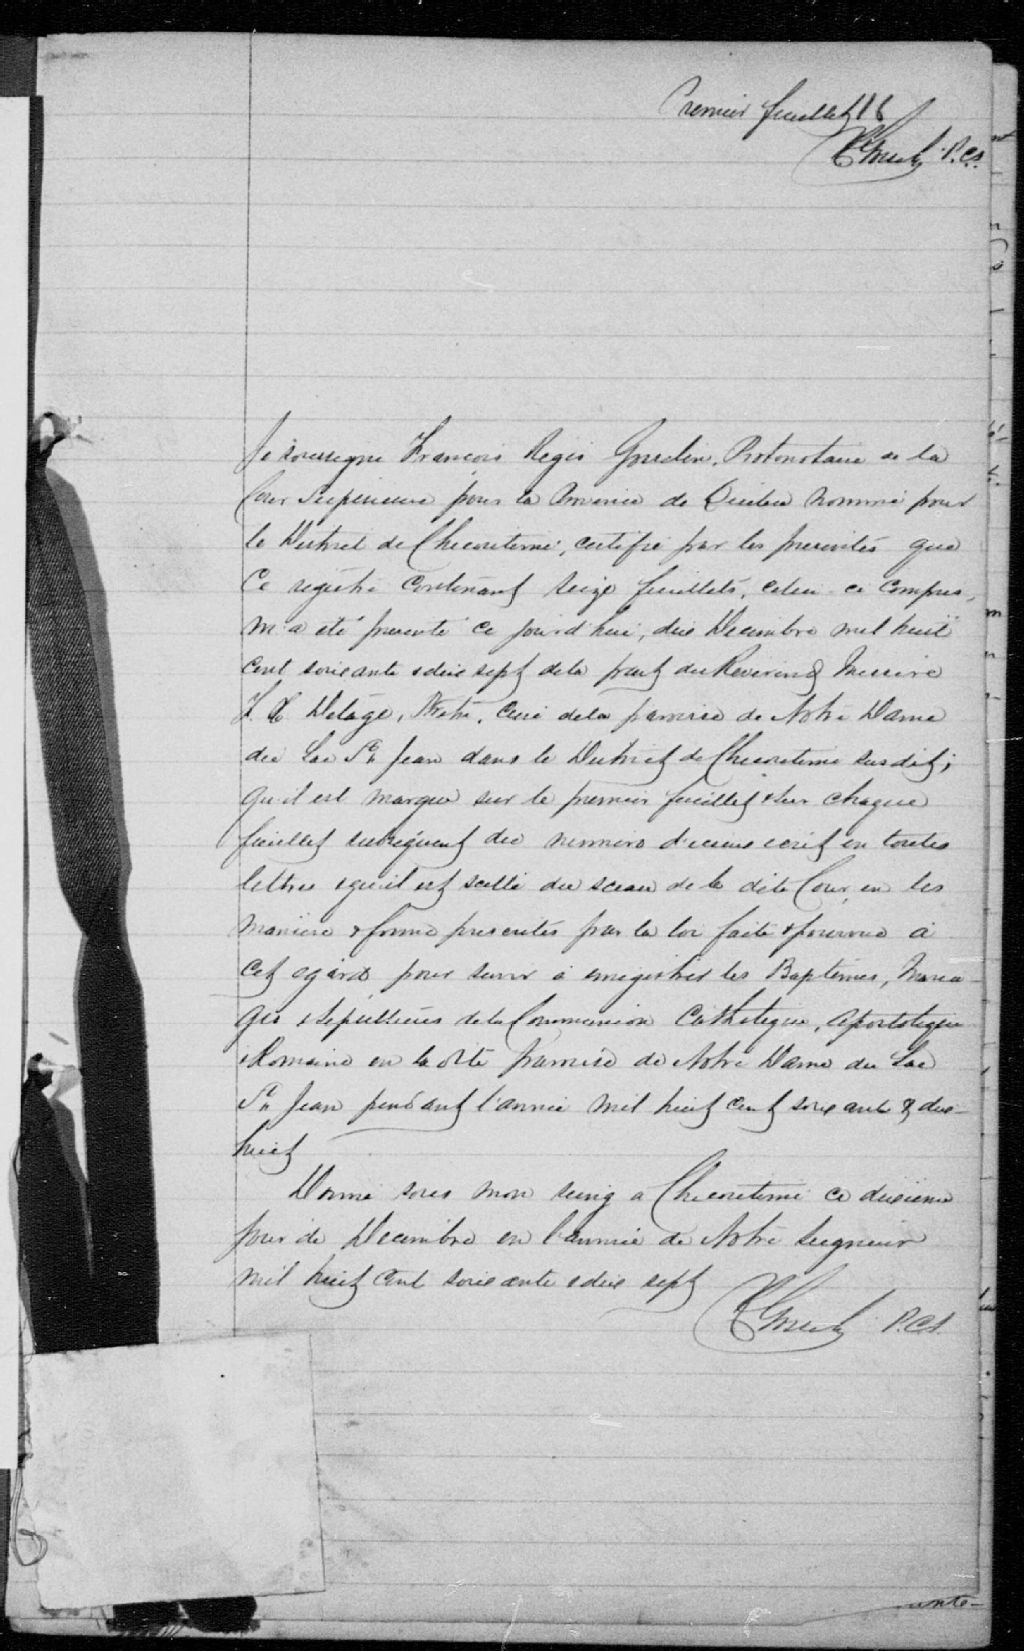 Premier feuillet 16
P.C.S.
Je soussigné François Régis Gosselin, Protonotaire de la
Cour Supérieure pour la Province de Québec nommé pour
le District de Chicoutimi, certifie par les présentes que
Ce registre Contenant seize feuillets, celui-ci compris,
m'a été présenté ce jourd'hui, dix Décembre mil huit
cent soixante & dix sept de la part du Révérend Messire
Delâge, Ptre, Curé de la paroisse de Notre Dame
du Lac St Jean dans le District de Chicoutimi susdit;
qu'il est marqué sur le premier feuillet & sur chaque
feuillet subséquent du numéro d'iceux écrit en toutes
lettres & qu'il est scellé du sceau de la dite Cour, en les
manière & forme prescrites par la loi faite & pourvue à
cet égard pour servir à enregistrer les Baptêmes, Maria-
ges & Sépultures de la Communion Catholique, Apostolique
& Romaine en la dite paroisse de Notre Dame du Lac
St Jean pendant l'année mil huit cent soixante & dix-
huit
Donné sous mon seing à Chicoutimi ce dixième
jour de Décembre en l'année de Notre Seigneur
mil huit cent soixante & dix sept
P.C.S.